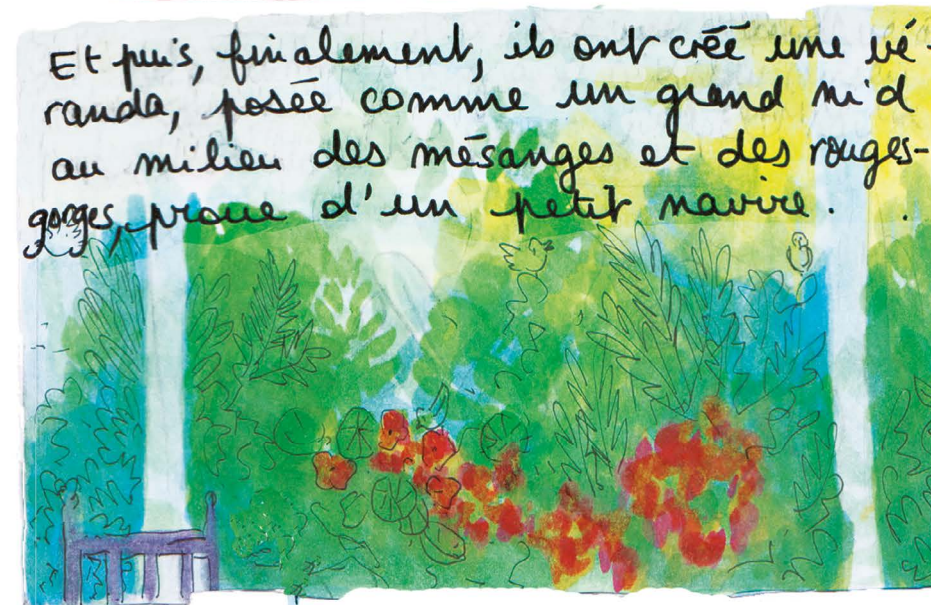 Et puis, finalement, ils ont créé une vé-
randa, posée comme un grand nid
au milieu des mésanges et des rouges-
gorges, proue d'un petit navire.